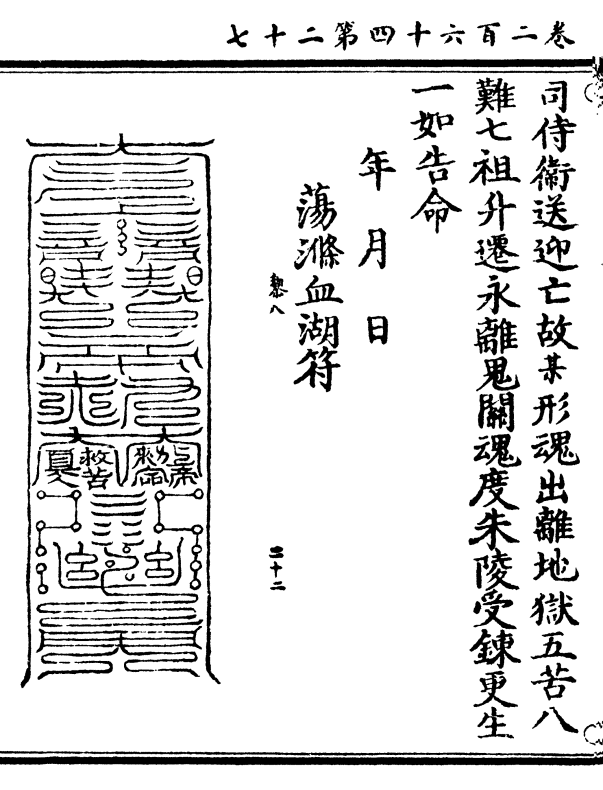 卷二百六十四第二十七
司侍衛送迎亡故某形魂出離地獄五苦八
難七祖升遷永離鬼關魂度朱陵受鍊更生
一如告命
年月日
蕩滌血湖符
黎八
夏
救苦